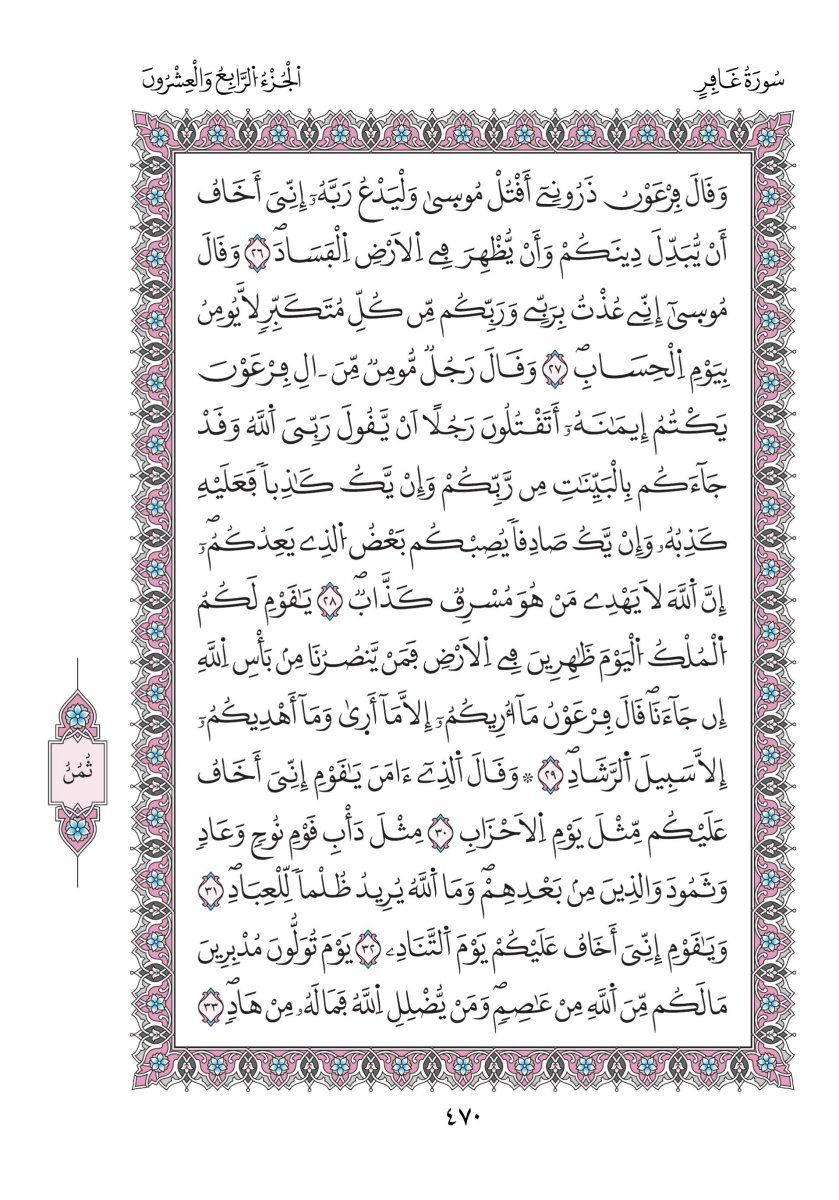 سُورَةُ غَافِرٍ
اَ۬لْجُزْءُ اُ۬لرَّابِعُ وَالْعِشْرُونَ
وَقَالَ فِرْعَوْنُ ذَرُونِےٓ أَقْتُلْ مُوس۪يٰ وَلْيَدْعُ رَبَّهُۥٓ إِنِّيَ أَخَافُ
أَنْ يُّبَدِّلَ دِينَكُمْ وَأَنْ يُّظْهِرَ فِے اِ۬لَارْضِ اِ۬لْفَسَادَۖ ٢٦ وَقَالَ
مُوس۪يٰٓ إِنِّے عُذْتُ بِرَبِّے وَرَبِّكُم مِّن كُلِّ مُتَكَبِّرٖ لَّا يُومِنُ
بِيَوْمِ اِ۬لْحِسَابِۖ ٢٧ وَقَالَ رَجُلٞ مُّومِنٞ مِّنَ اٰلِ فِرْعَوْنَ
يَكْتُمُ إِيمَٰنَهُۥٓ أَتَقْتُلُونَ رَجُلًا اَنْ يَّقُولَ رَبِّيَ اَ۬للَّهُ وَقَدْ
جَآءَكُم بِالْبَيِّنَٰتِ مِن رَّبِّكُمْ وَإِنْ يَّكُ كَٰذِباٗ فَعَلَيْهِ
كَذِبُهُۥ وَإِنْ يَّكُ صَادِقاٗ يُصِبْكُم بَعْضُ اُ۬لذِے يَعِدُكُمُۥٓۖ
إِنَّ اَ۬للَّهَ لَا يَهْدِے مَنْ هُوَ مُسْرِفٞ كَذَّابٞۖ ٢٨ يَٰقَوْمِ لَكُمُ
اُ۬لْمُلْكُ اُ۬لْيَوْمَ ظَٰهِرِينَ فِے اِ۬لَارْضِ فَمَنْ يَّنصُرُنَا مِنۢ بَأْسِ اِ۬للَّهِ
إِن جَآءَنَاۖ قَالَ فِرْعَوْنُ مَآ أُرِيكُمُۥٓ إِلَّا مَآ أَر۪يٰ وَمَآ أَهْدِيكُمُۥٓ
إِلَّا سَبِيلَ اَ۬لرَّشَادِۖ ٢٩ ۞ وَقَالَ اَ۬لذِےٓ ءَامَنَ يَٰقَوْمِ إِنِّيَ أَخَافُ
عَلَيْكُم مِّثْلَ يَوْمِ اِ۬لَاحْزَابِ ٣٠ مِثْلَ دَأْبِ قَوْمِ نُوحٖ وَعَادٖ
وَثَمُودَ وَالذِينَ مِنۢ بَعْدِهِمْۖ وَمَا اَ۬للَّهُ يُرِيدُ ظُلْماٗ لِّلْعِبَادِۖ ٣١
وَيَٰقَوْمِ إِنِّيَ أَخَافُ عَلَيْكُمْ يَوْمَ اَ۬لتَّنَادِۦ ٣٢ يَوْمَ تُوَلُّونَ مُدْبِرِينَ
مَا لَكُم مِّنَ اَ۬للَّهِ مِنْ عَاصِمٖۖ وَمَنْ يُّضْلِلِ اِ۬للَّهُ فَمَا لَهُۥ مِنْ هَادٖۖ ٣٣
ثُمُنُ
٤٧٠